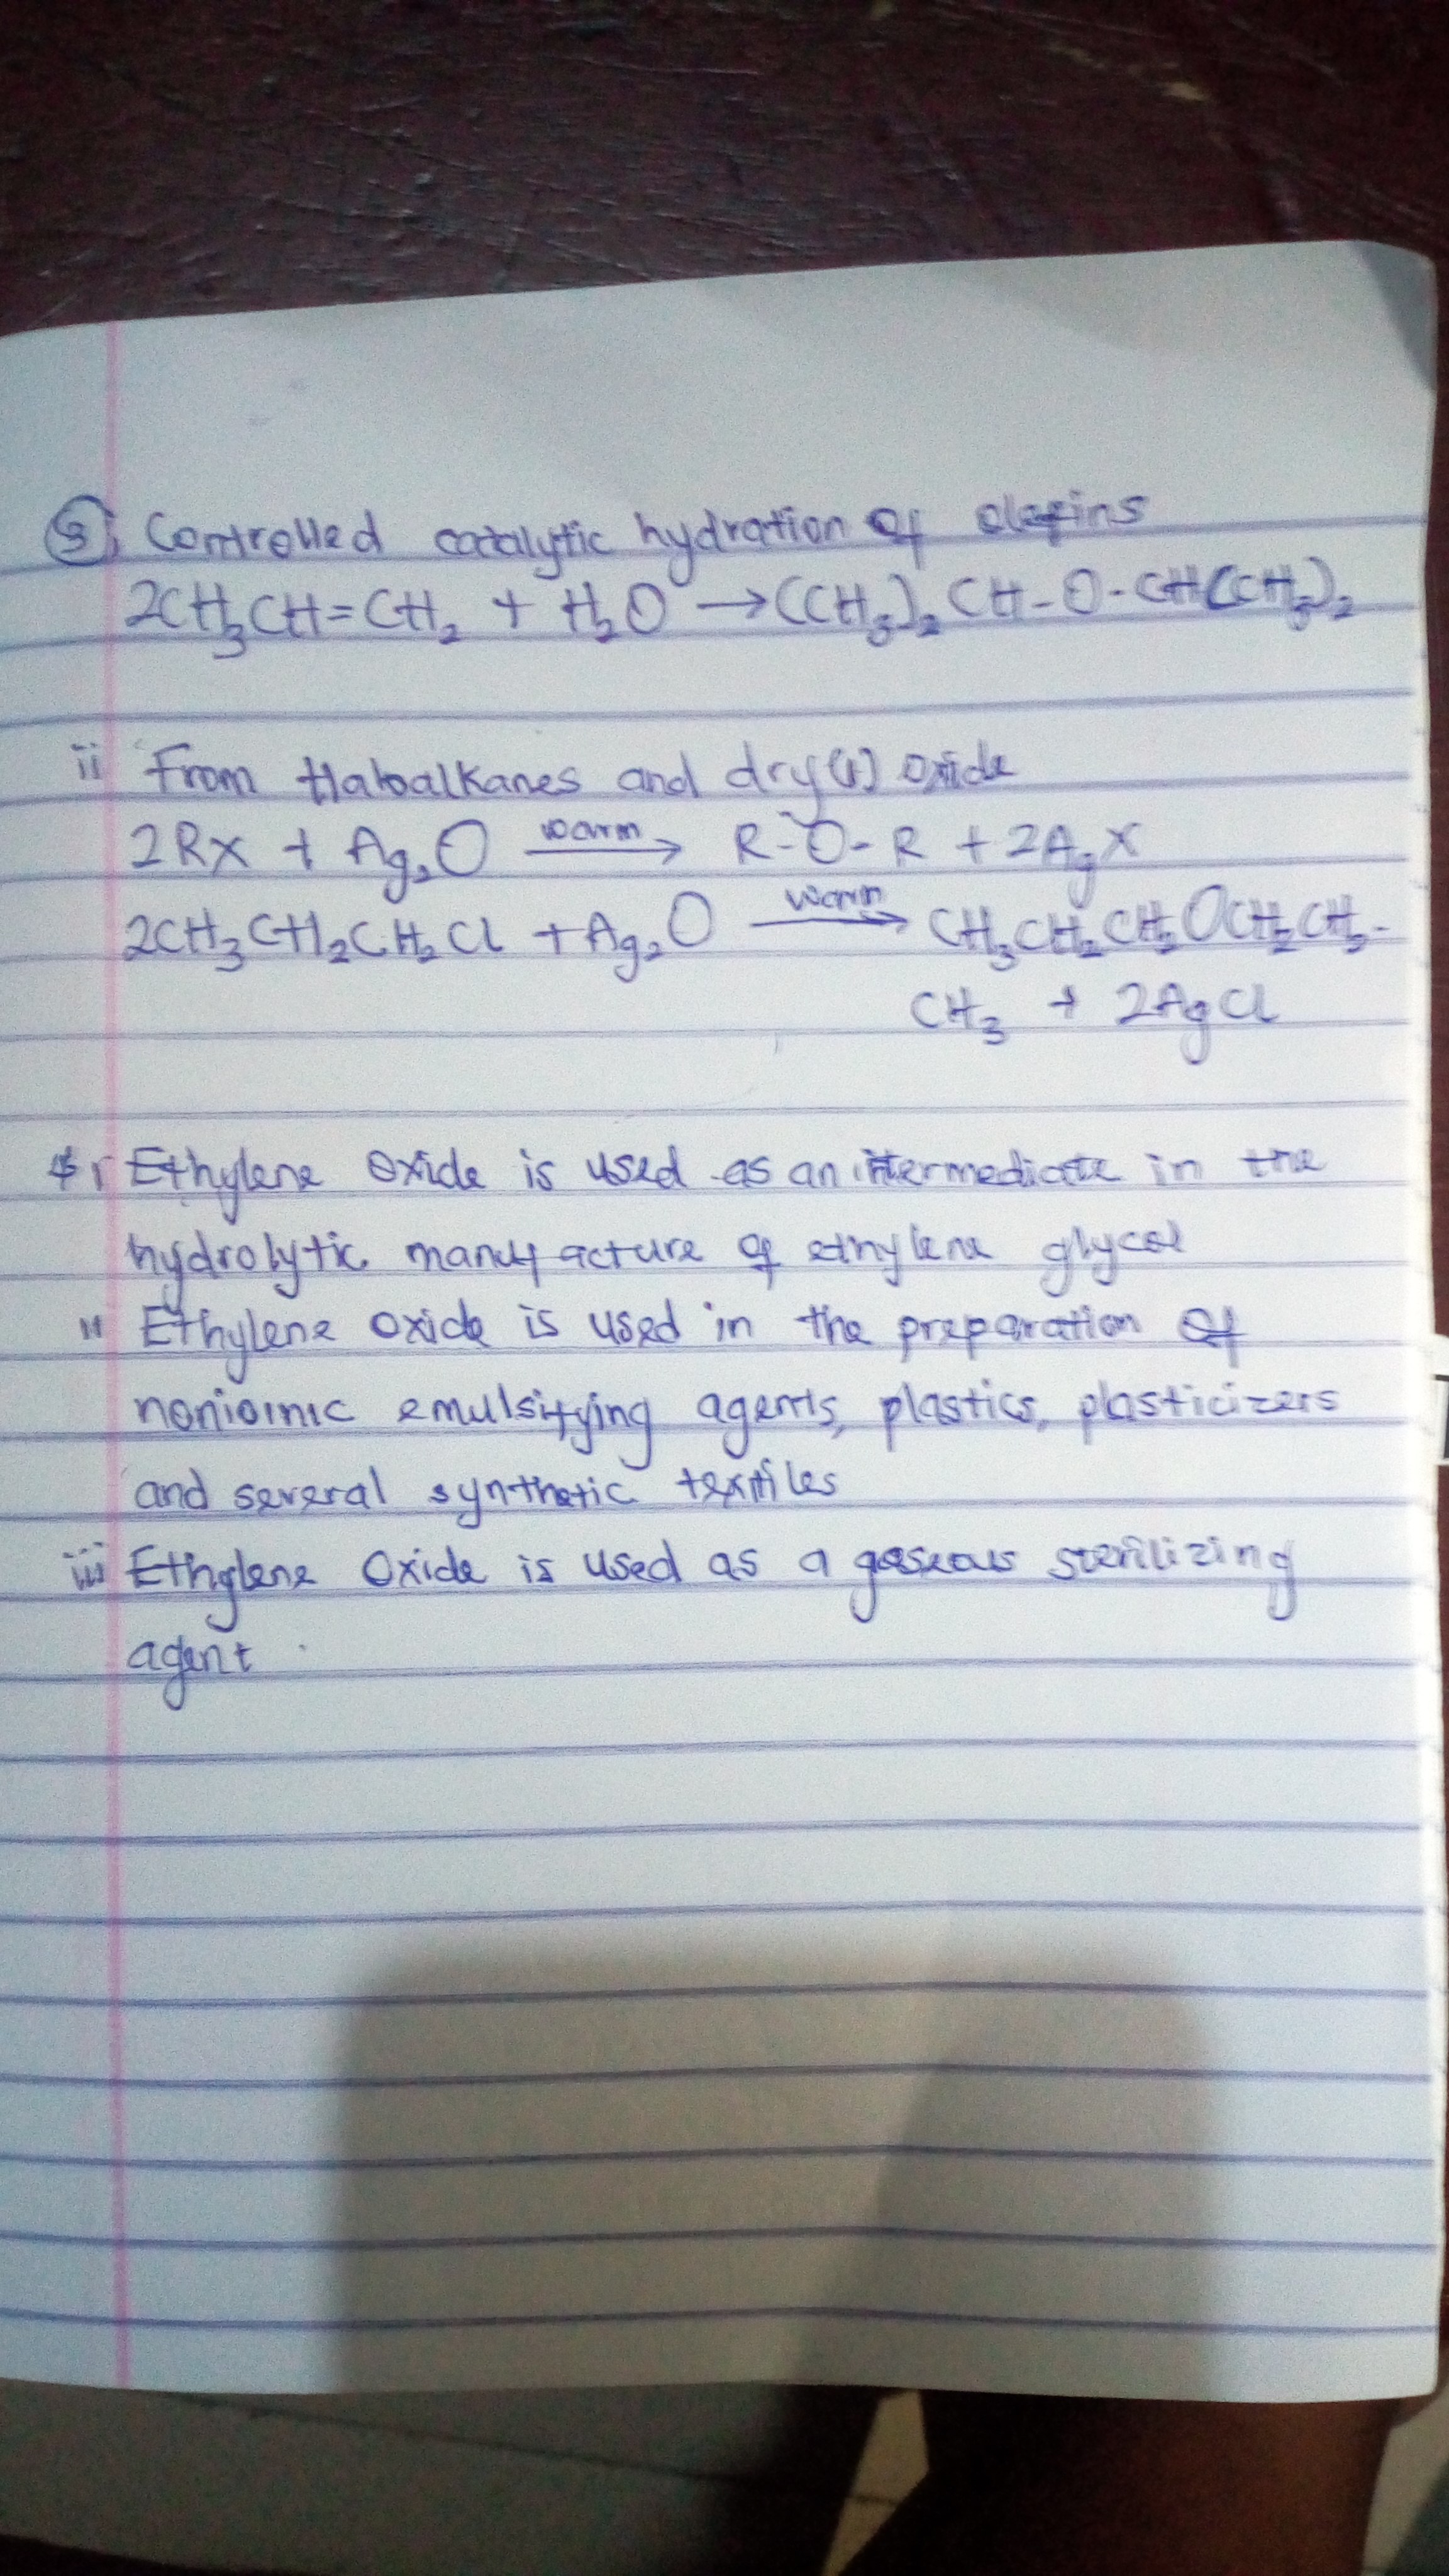 ③ Controlled catalytic hydration of olefins
2CH₃CH=CH₂ + H₂O → (CH₃)₂CH-O-CH(CH₃)₂
ii From Haloalkanes and dry(1) oxide
2RX + Ag₂O warm→ R-O-R + 2AgX
2CH₃CH₂CH₂Cl + Ag₂O warm→ CH₃CH₂CH₂OCH₂CH₂-
CH₃ + 2AgCl
i Ethylene oxide is used as an intermediate in the
hydrolytic manufacture of ethylene glycol
ii Ethylene oxide is used in the preparation of
nonioinic emulsifying agents, plastics, plasticizers
and several synthetic textiles
iii Ethylene Oxide is used as a gaseous sterilizing
agent.